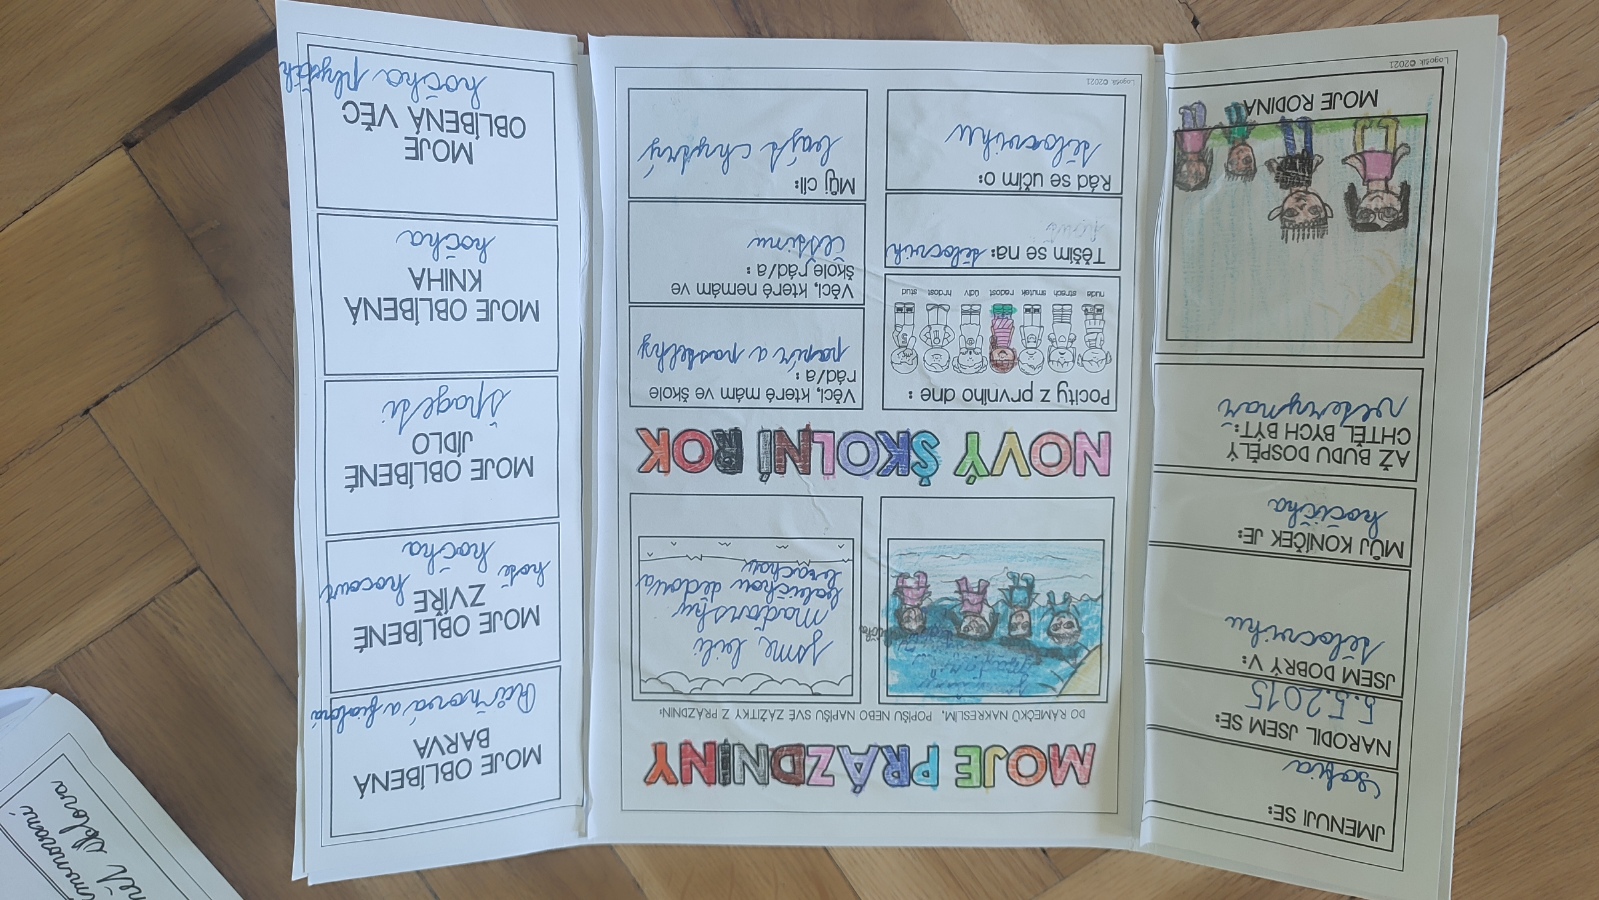 JMENUJI SE:
Sofia
NARODIL JSEM SE:
5.5.2015
JSEM DOBRÝ V:
tělocviku
MŮJ KONÍČEK JE:
kočička
AŽ BUDU DOSPĚLÝ
CHTĚL BYCH BÝT:
MOJE RODINA
Logošik ©2021
MOJE PRÁZDNINY
DO RÁMEČKŮ NAKRESLÍM, POPÍŠU NEBO NAPÍŠU SVÉ ZÁŽITKY Z PRÁZDNIN:
jsme byli
maďarsku
dědova
NOVÝ ŠKOLNÍ ROK
Pocity z prvního dne :
nuda strach smutek radost údiv hrdost stud
Těším se na: tělocvik
Rád se učím o:
tělocviku
Věci, které mám ve škole
rád/a :
papír a pastelky
Věci, které nemám ve
škole rád/a :
češtinu
Můj cíl:
být chytrý
Logošik ©2021
MOJE OBLÍBENÁ
BARVA
a fialová
MOJE OBLÍBENÉ
ZVÍŘE
kočka
MOJE OBLÍBENÉ
JÍDLO
špageti
MOJE OBLÍBENÁ
KNIHA
kočka
MOJE
OBLÍBENÁ VĚC
kočka plyšák